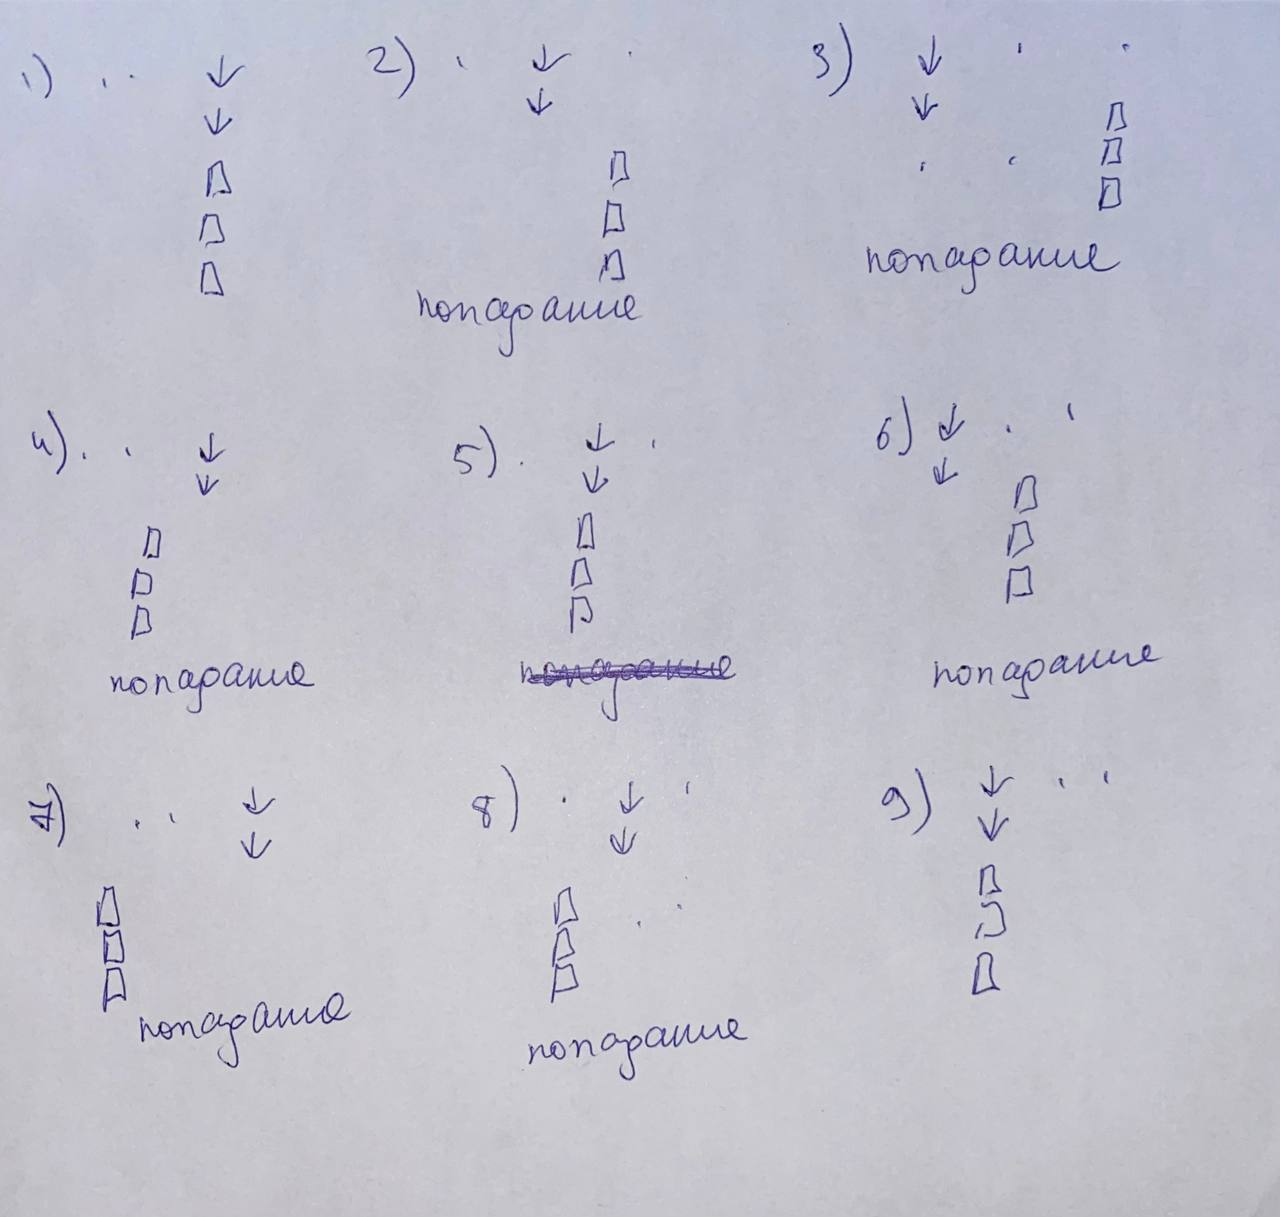 1)
2)
3)
попадание
попадание
4)
5)
6)
попадание
попадание
попадание
7)
8)
9)
попадание
попадание